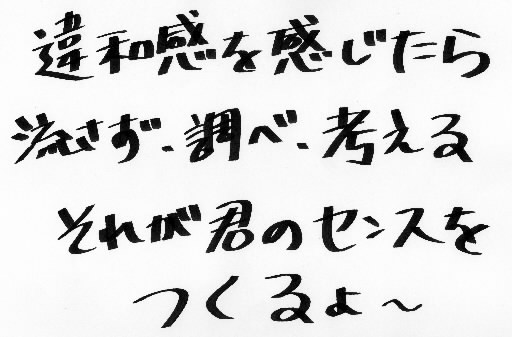 違和感を感じたら
流さず、調べ、考える
それが君のセンスを
つくるよ～